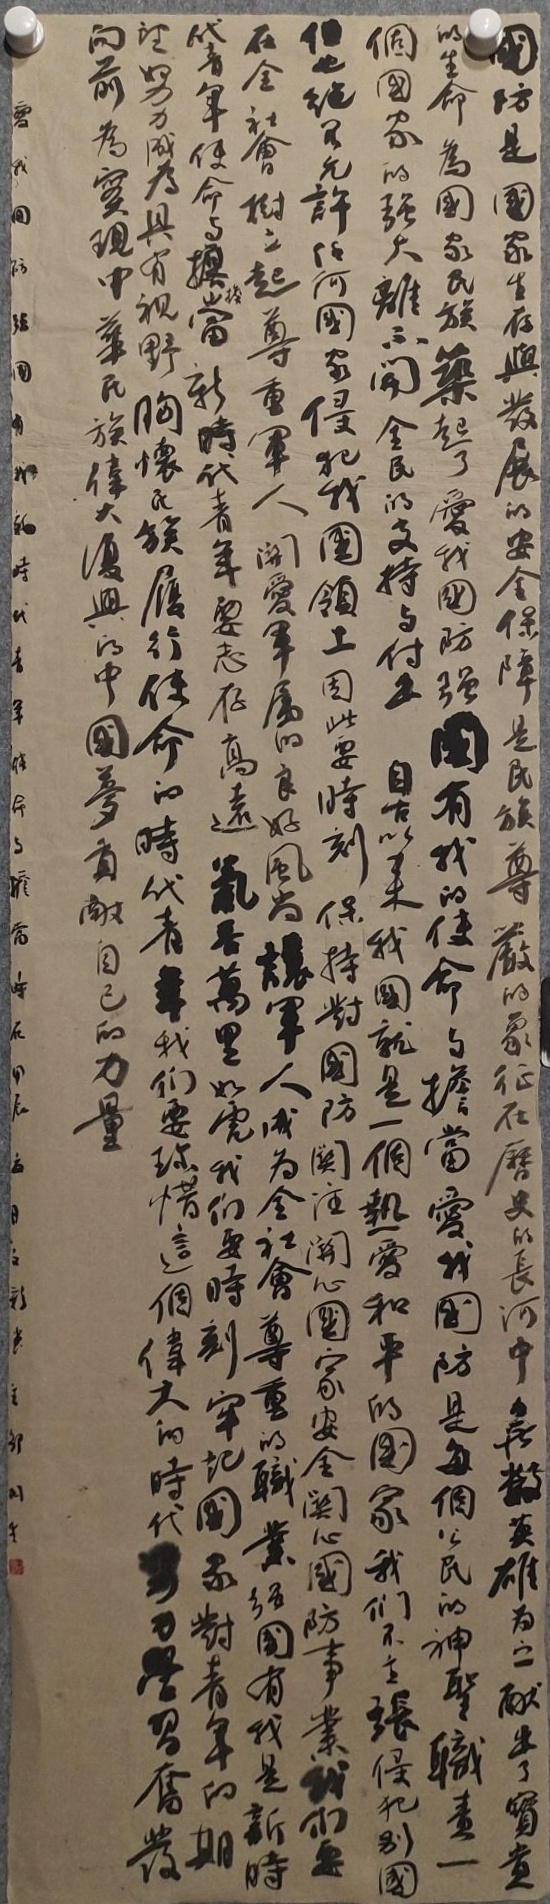 國防是國家生存與發展的安全保障是民族尊嚴的象征在歷史的長河中無數英雄為之獻出了寶貴
的生命為國家民族築起了愛我國防強國有我的使命与擔當愛我國防是每個公民的神聖職責一
個國家的強大離不開全民的支持与付出自古以来我國就是一個熱愛和平的國家我们不主張侵犯别國
但也絕不允許任何國家侵犯我國領土因此要時刻保持對國防関注関心國家安全関心國防事業我们要
在全社會樹立起尊重軍人関愛軍屬的良好風尚讓軍人成為全社會尊重的職業強國有我是新時
代青年使命与擔當新時代青年要志存高遠氣吞萬里如虎我们要時刻牢記國家對青年的期
望努力成為具有視野胸懷民族履行使命的時代青年我们要珍惜這個偉大的時代努力學習奮發
向前為實現中華民族偉大復興的中國夢貢獻自己的力量
愛我國防強國有我新時代青年使命与擔當時在甲辰